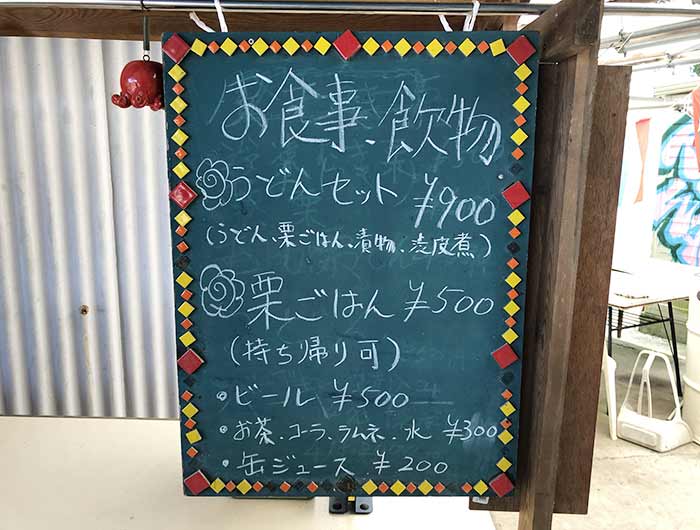 お食事、飲物
うどんセット ¥900
(うどん、栗ごはん、漬物、渋皮煮)
栗ごはん ¥500
(持ち帰り可)
・ビール ¥500
・お茶.コーラ.ラムネ.水 ¥300
・缶ジュース ¥200